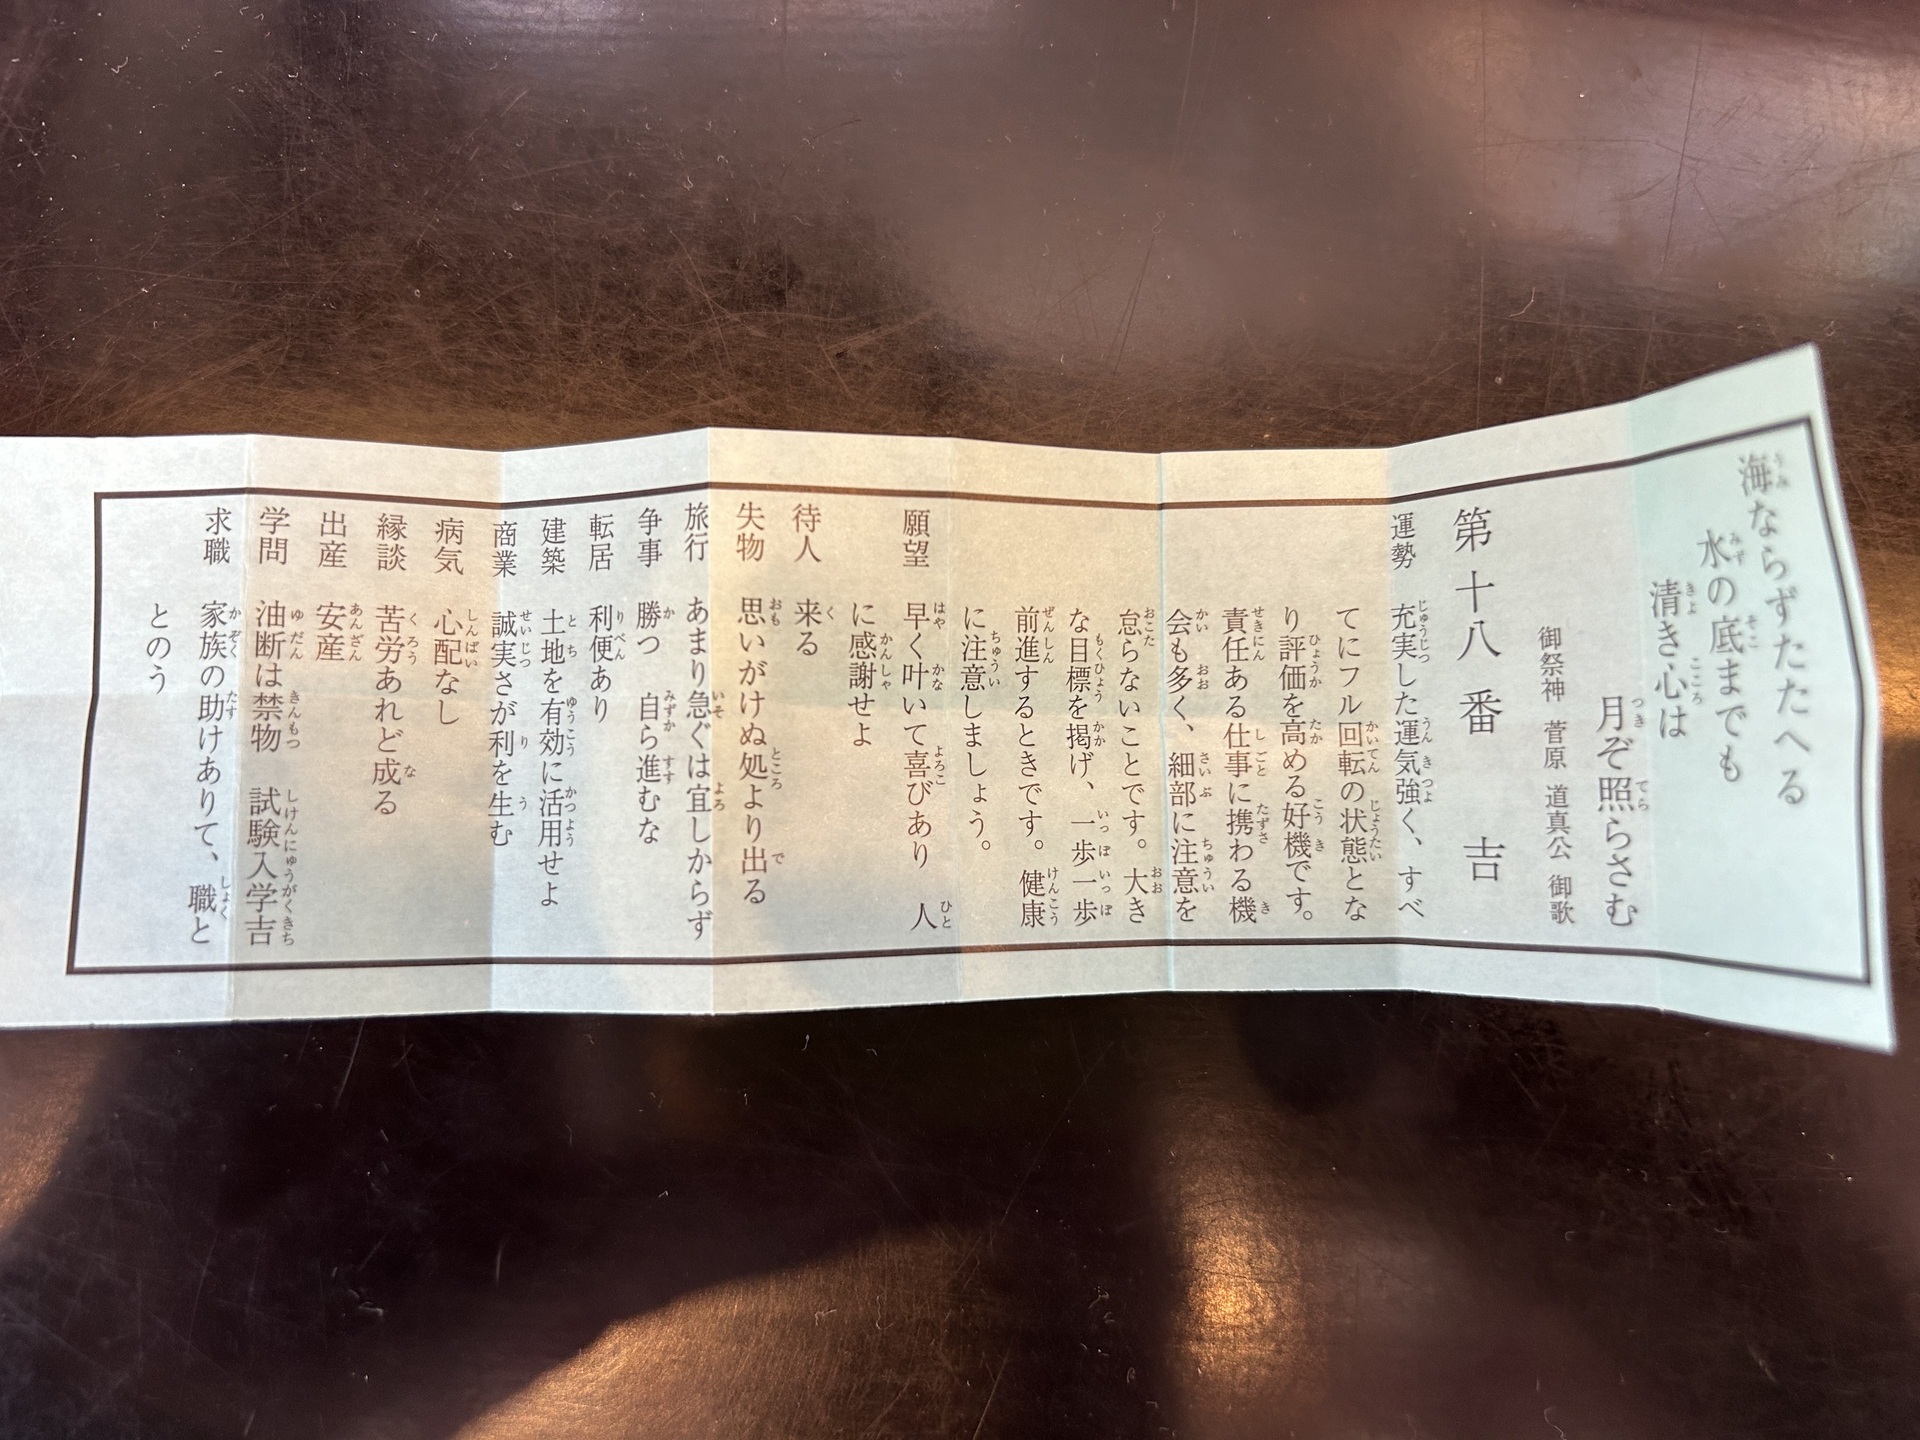 海ならずたたへる
水の底までも
清き心は
月ぞ照らさむ
御祭神 菅原 道真公 御歌
第十八番 吉
運勢 充実した運気強く、すべ
てにフル回転の状態とな
り評価を高める好機です。
責任ある仕事に携わる機
会も多く、細部に注意を
怠らないことです。大き
な目標を掲げ、一歩一歩
前進するときです。健康
に注意しましょう。
願望 早く叶いて喜びあり 人
に感謝せよ
待人 来る
失物 思いがけぬ処より出る
旅行 あまり急ぐは宜しからず
争事 勝つ 自ら進むな
転居 利便あり
建築 土地を有効に活用せよ
商業 誠実さが利を生む
病気 心配なし
縁談 苦労あれど成る
出産 安産
学問 油断は禁物 試験入学吉
求職 家族の助けありて、職と
とのう